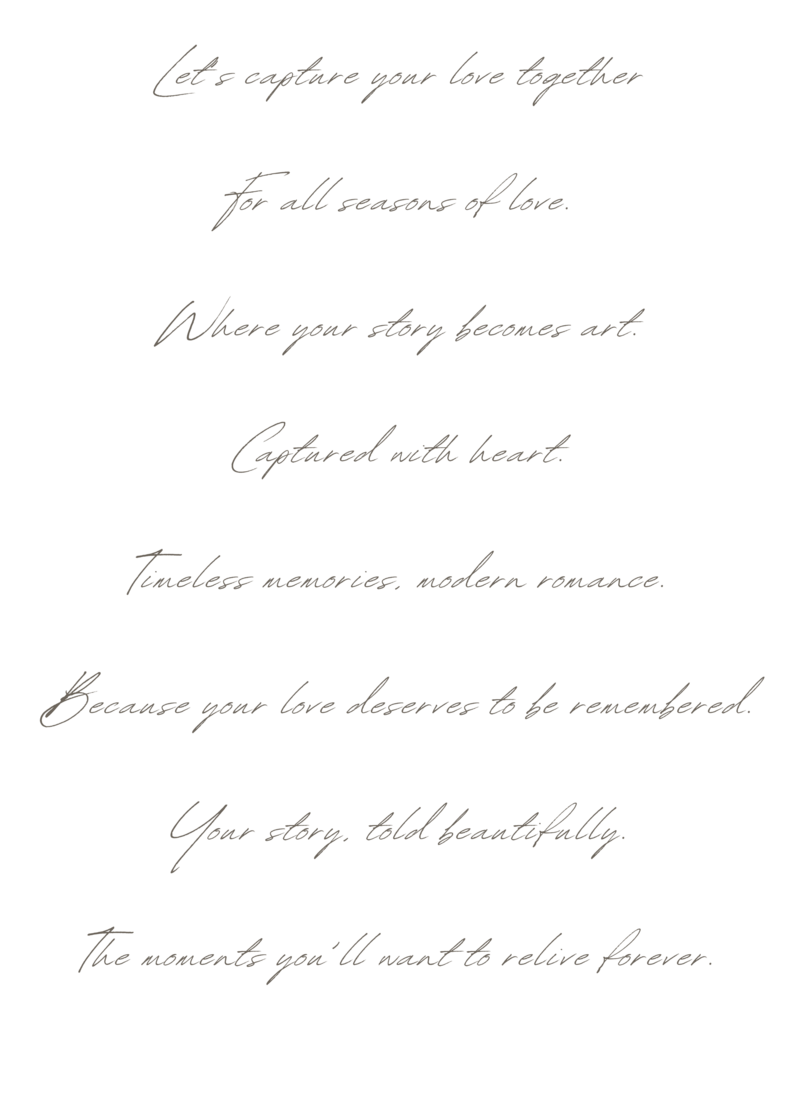 Let's capture your love together
For all seasons of love.
Where your story becomes art.
Captured with heart.
Timeless memories, modern romance.
Because your love deserves to be remembered.
Your story, told beautifully.
The moments you'll want to relive forever.